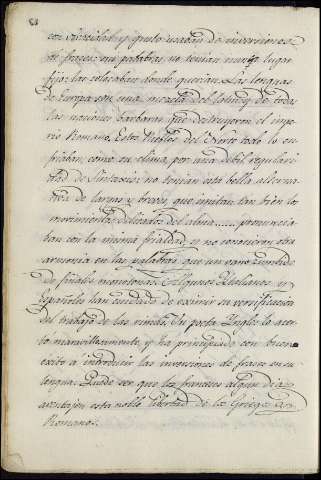 con facilidad, y gusto usaban de inversiones
de frases: sus palabras no tenian nunca lugar
fijo: las colocaban donde querian. Las lenguas
de Europa son una mezcla del latin, y de todas
las naciones barbaras que destruyeron el impe-
rio Romano. Estos Pueblos del Norte todo lo en-
friaban como su clima, por una debil regulari-
dad de sintaxis: no tenian esta bella alterna-
tiva de largas y breves, que imitan tan bien los
movimientos delicados del alma...... pronuncia-
ban con la misma frialdad, y no conocieron otra
armonia en las palabras que un vano sonido
de finales monotonas. Algunos Italianos, y
Españoles han cuidado de eximir su versificacion
del trabajo de las rimas. Un poeta Yngles lo acer-
to maravillosamente, y ha principiado con buen
exito a introducir las inversiones de frases en su
lengua. Puede ser que los franceses algun dia
aventajen esta noble libertad de los Griegos, y
Romanos.